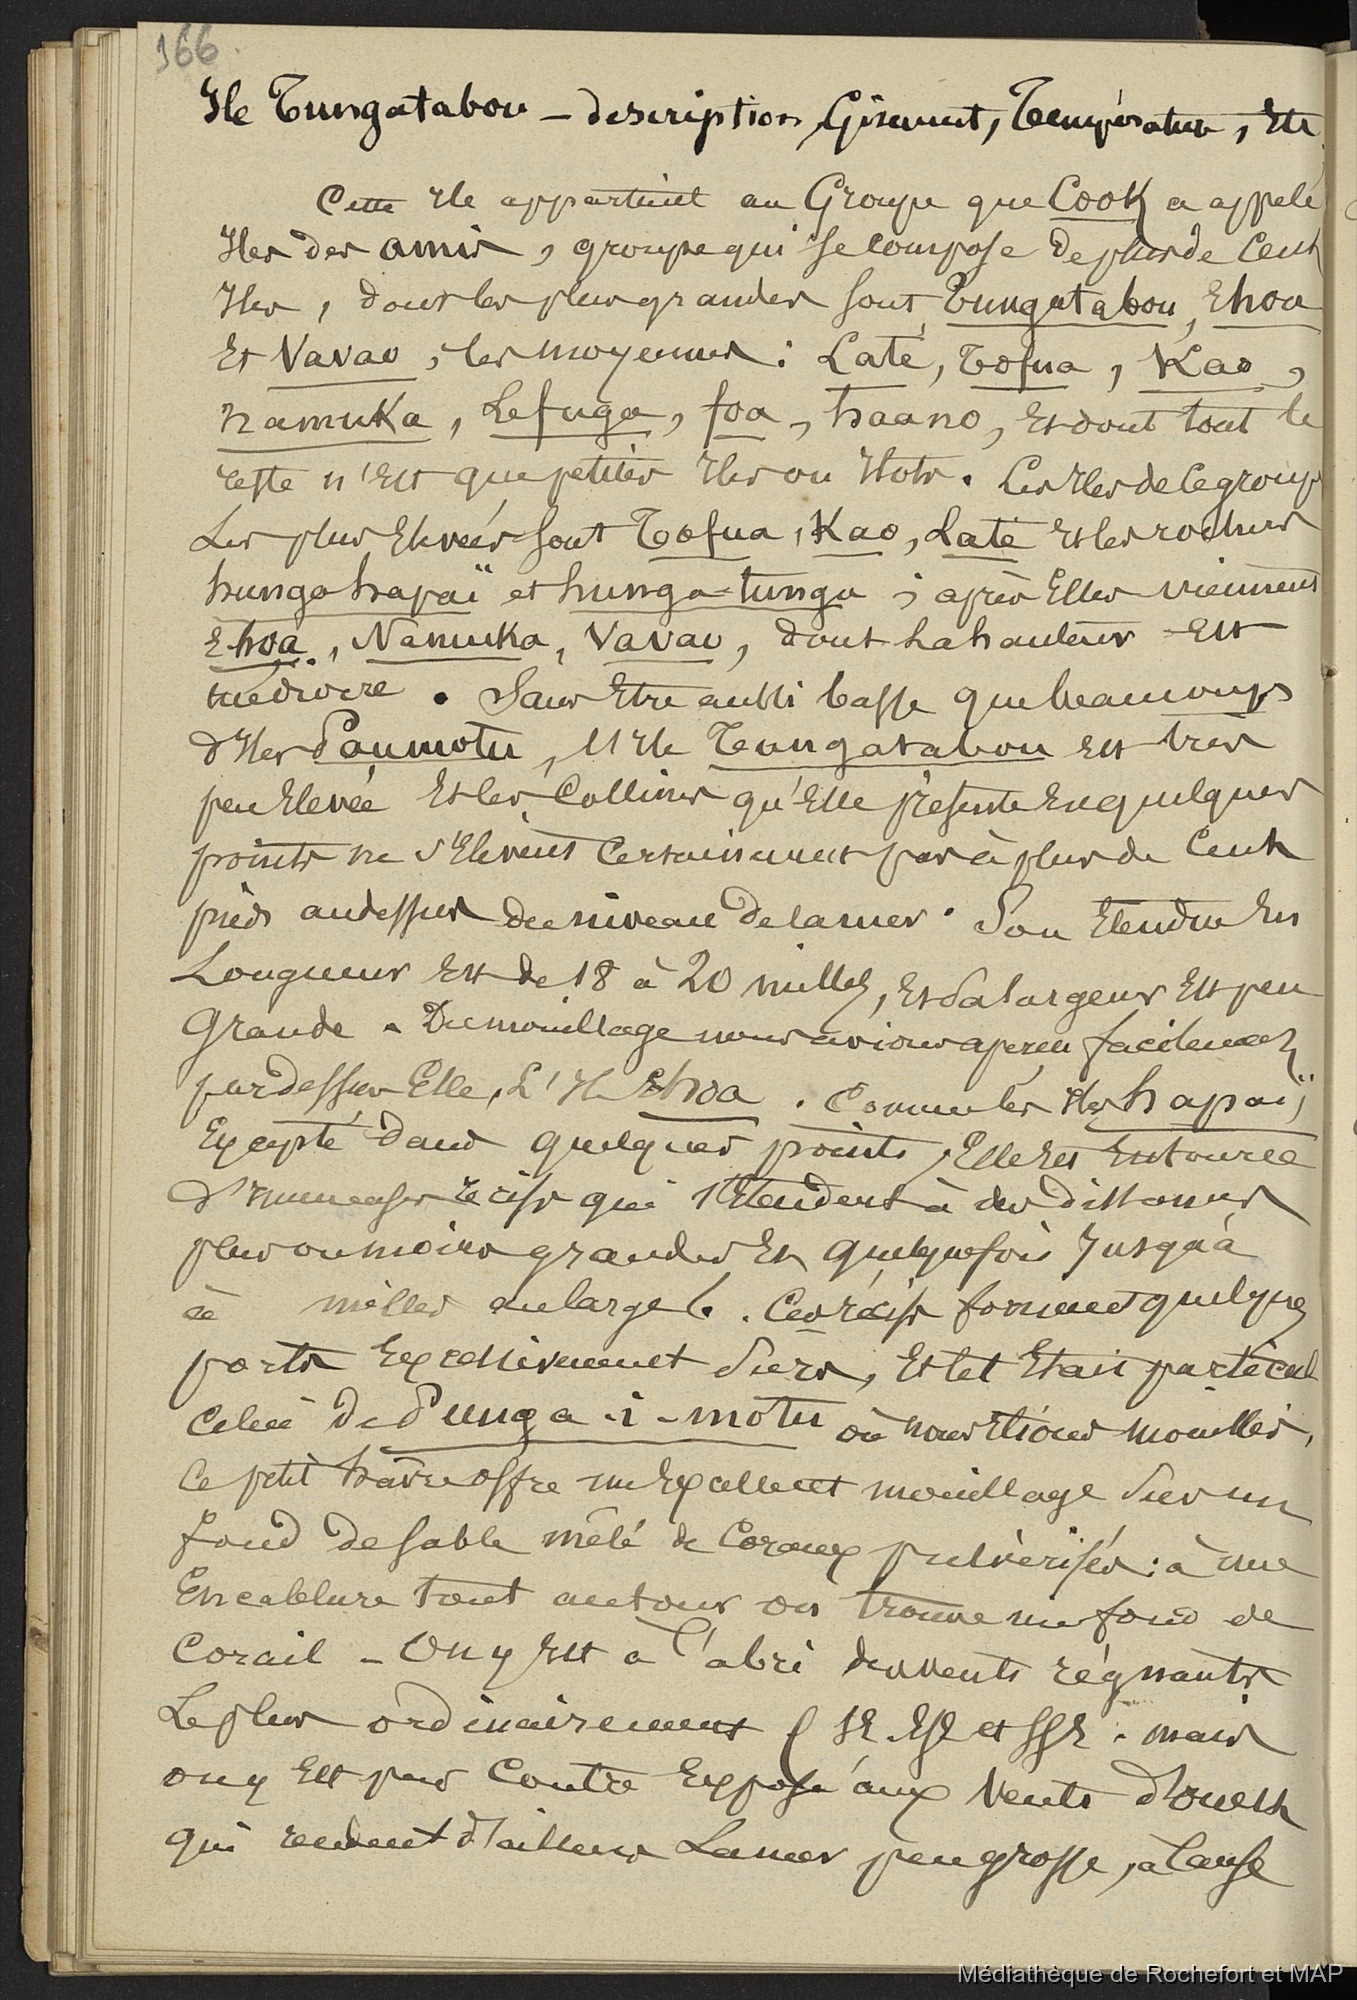 166.
Ile Tungatabou – description, Gisement, Température, Etc
Cette Ile appartient au Groupe que Cook a appelé
Iles des amis, groupe qui se compose de plus de Cent
Iles, dont les plus grandes sont Tungatabou, Ehoa
Et Vavao, les moyennes : Laté, Tofua, Kao,
namuka, Lefuga, foa, haano, Et dont tout le
reste n'Est que petites Iles ou Ilots. Les Iles de ce group
Les plus Elevées sont Tofua, Kao, Laté Et les rochers
hunga hapaï et hunga-tunga ; après Elles viennent
Ehoa, Namuka, Vavao, dont La hauteur Est
médiocre. Sans Etre aussi basse que beaucoup
d'Iles Paumotu, l'Ile Tungatabou Est très
peu Elevée Et les Collines qu'Elle présente En quelques
points ne s'Elèvent Certainement pas à plus de Cent
pieds audessus du niveau de la mer. Son Etendue En
Longueur Est de 18 à 20 milles, Et Sa largeur Est peu
Grande. Du mouillage nous avions aperçu facilement
pardessus Elle, L'Ile Ehoa. Comme les Iles hapaï,
Excepté dans quelques points, Elle Est Entourée
d'Immenses récifs qui s'Etendent à des distances
plus ou moins grandes Et quelquefois Jusqu'à
à milles au large. Ces récifs forment quelques
ports Excessivement Surs, Et tel Etait particul
Celui de Punga-i-motu où nous Etions mouillés.
Ce petit havre offre un Excellent mouillage Sur un
fond de sable mêlé de Coraux pulvérisés : à une
Encablure tout autour on trouve un fond de
Corail – On y Est à l'abri des vents régnants
Le plus ordinairement ( SE. ESE et SSE. mais
on y Est par Contre Exposé aux Vents d'ouest
qui rendent d'ailleurs La mer peu grosse, à Cause
Médiathèque de Rochefort et MAP